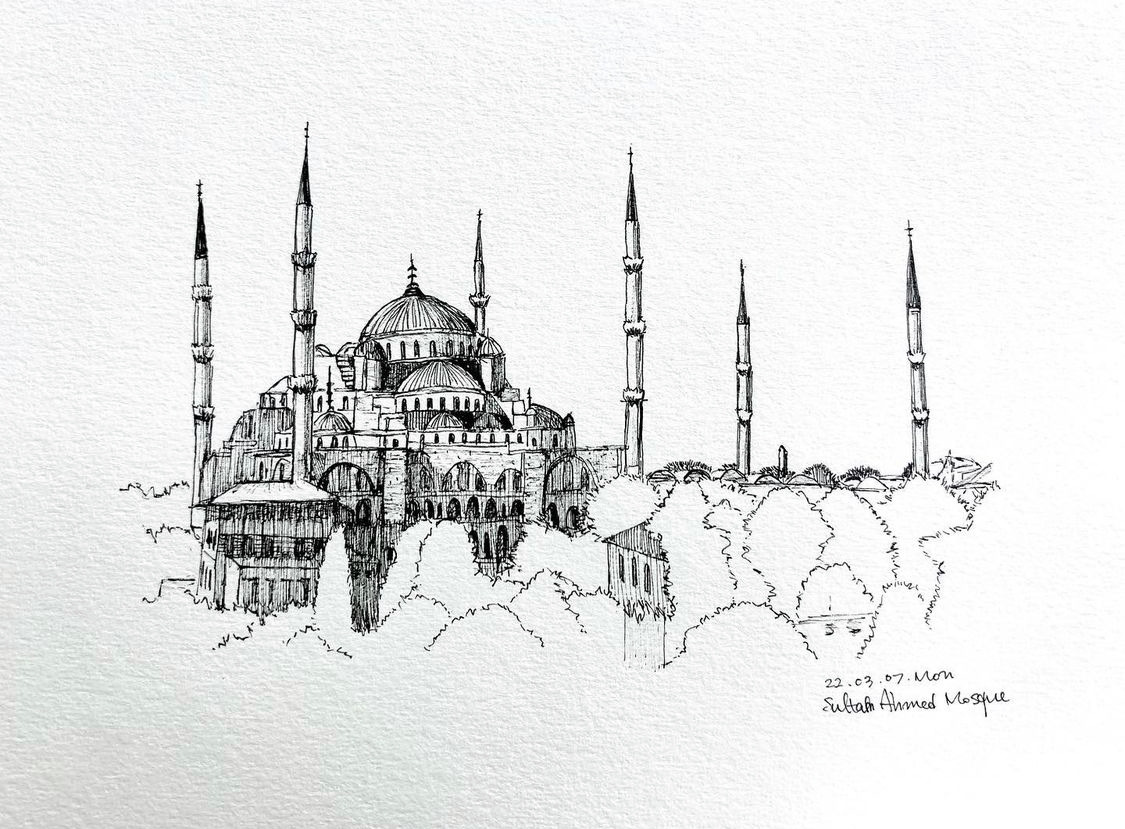 22.03.07.Mon
Sultan Ahmed Mosque